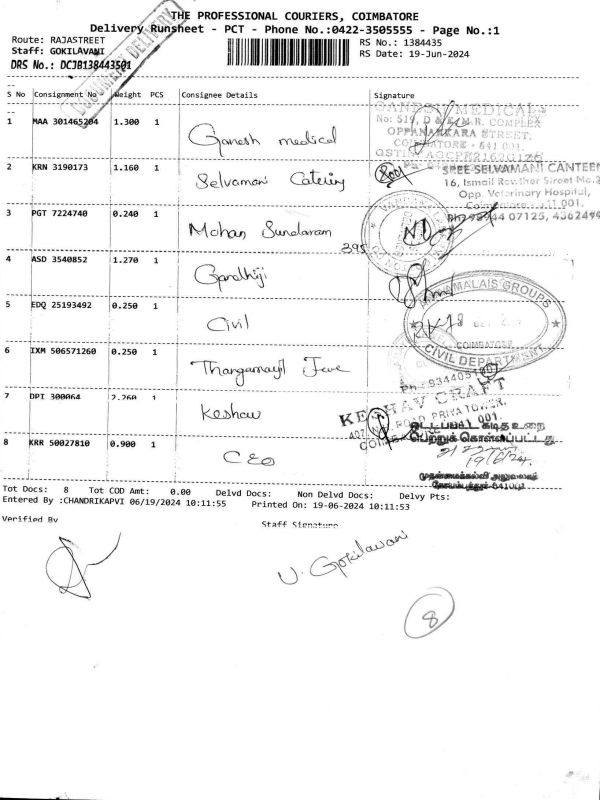 THE PROFESSIONAL COURIERS, COIMBATORE
Delivery Runsheet - PCT - Phone No.:0422-3505555 - Page No.:1
Route: RAJASTREET
RS No.: 1384435
Staff: GOKILAVANI
RS Date: 19-Jun-2024
DRS No.: DCJB138443501
DOCUMENT DELIVERY
S No Consignment No Weight PCS Consignee Details Signature
1 MAA 301465204 1.300 1 Ganesh medical
GANESH MEDICAL
OPPANAKKARA STREET,
COIMBATORE - 641 001.
2 KRN 3190173 1.160 1 Selvamani Catering
SREE SELVAMANI CANTEEN
16, Ismail Rowther Street No.2
Opp. Veterinary Hospital,
3 PGT 7224740 0.240 1 Mohan Sundaram
395
4 ASD 3540852 1.270 1 Gandhiji
5 EDQ 25193492 0.250 1 Civil
MALAIS GROUPS
COIMBATORE
CIVIL DEPARTMENT
6 IXM 506571260 0.250 1 Thangamayil Jewe
7 DPI 300064 2.260 1 Keshav
KESHAV CRAFT
ROAD, PRIYA TOWER,
8 KRR 50027810 0.900 1 CEO
பெற்றுக் கொள்ளப்பட்டது
19/6/24
முதன்மைக்கல்வி அலுவலகம்
Tot Docs: 8 Tot COD Amt: 0.00 Delvd Docs: Non Delvd Docs: Delvy Pts:
Entered By :CHANDRIKAPVI 06/19/2024 10:11:55 Printed On: 19-06-2024 10:11:53
Verified By
Staff Signature
V. Gokilavani
8